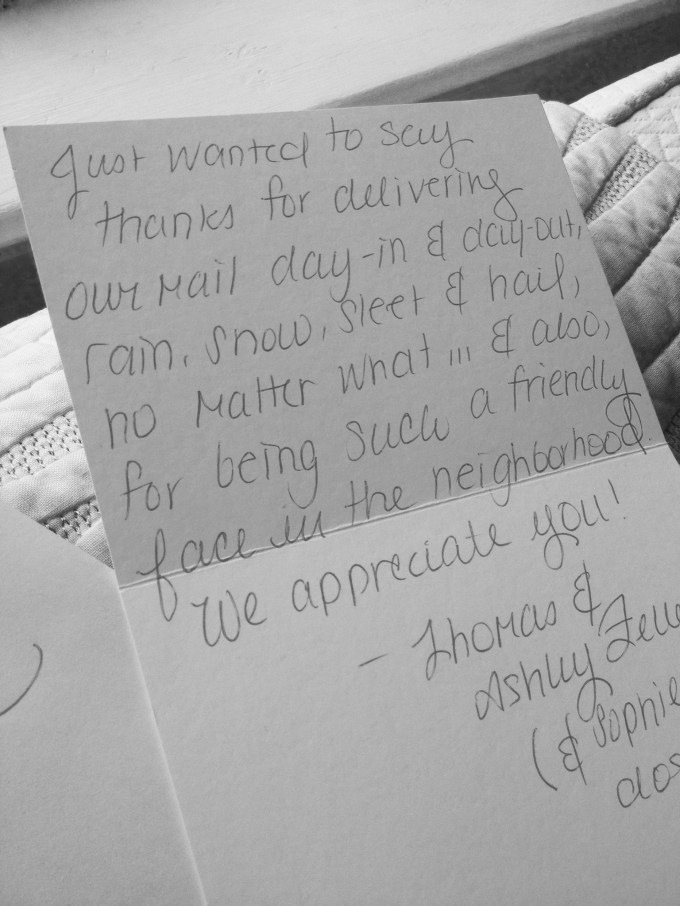 Just wanted to say
thanks for delivering
our mail day-in & day-out,
rain, snow, sleet & hail,
no matter what ... & also,
for being such a friendly
face in the neighborhood.
We appreciate you!
- Thomas &
Ashley
(& Sophie